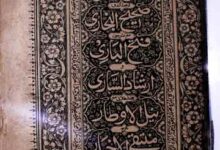 صحيح البخاري
فتح الباري
ارشاد الساري
نيل الاوطار